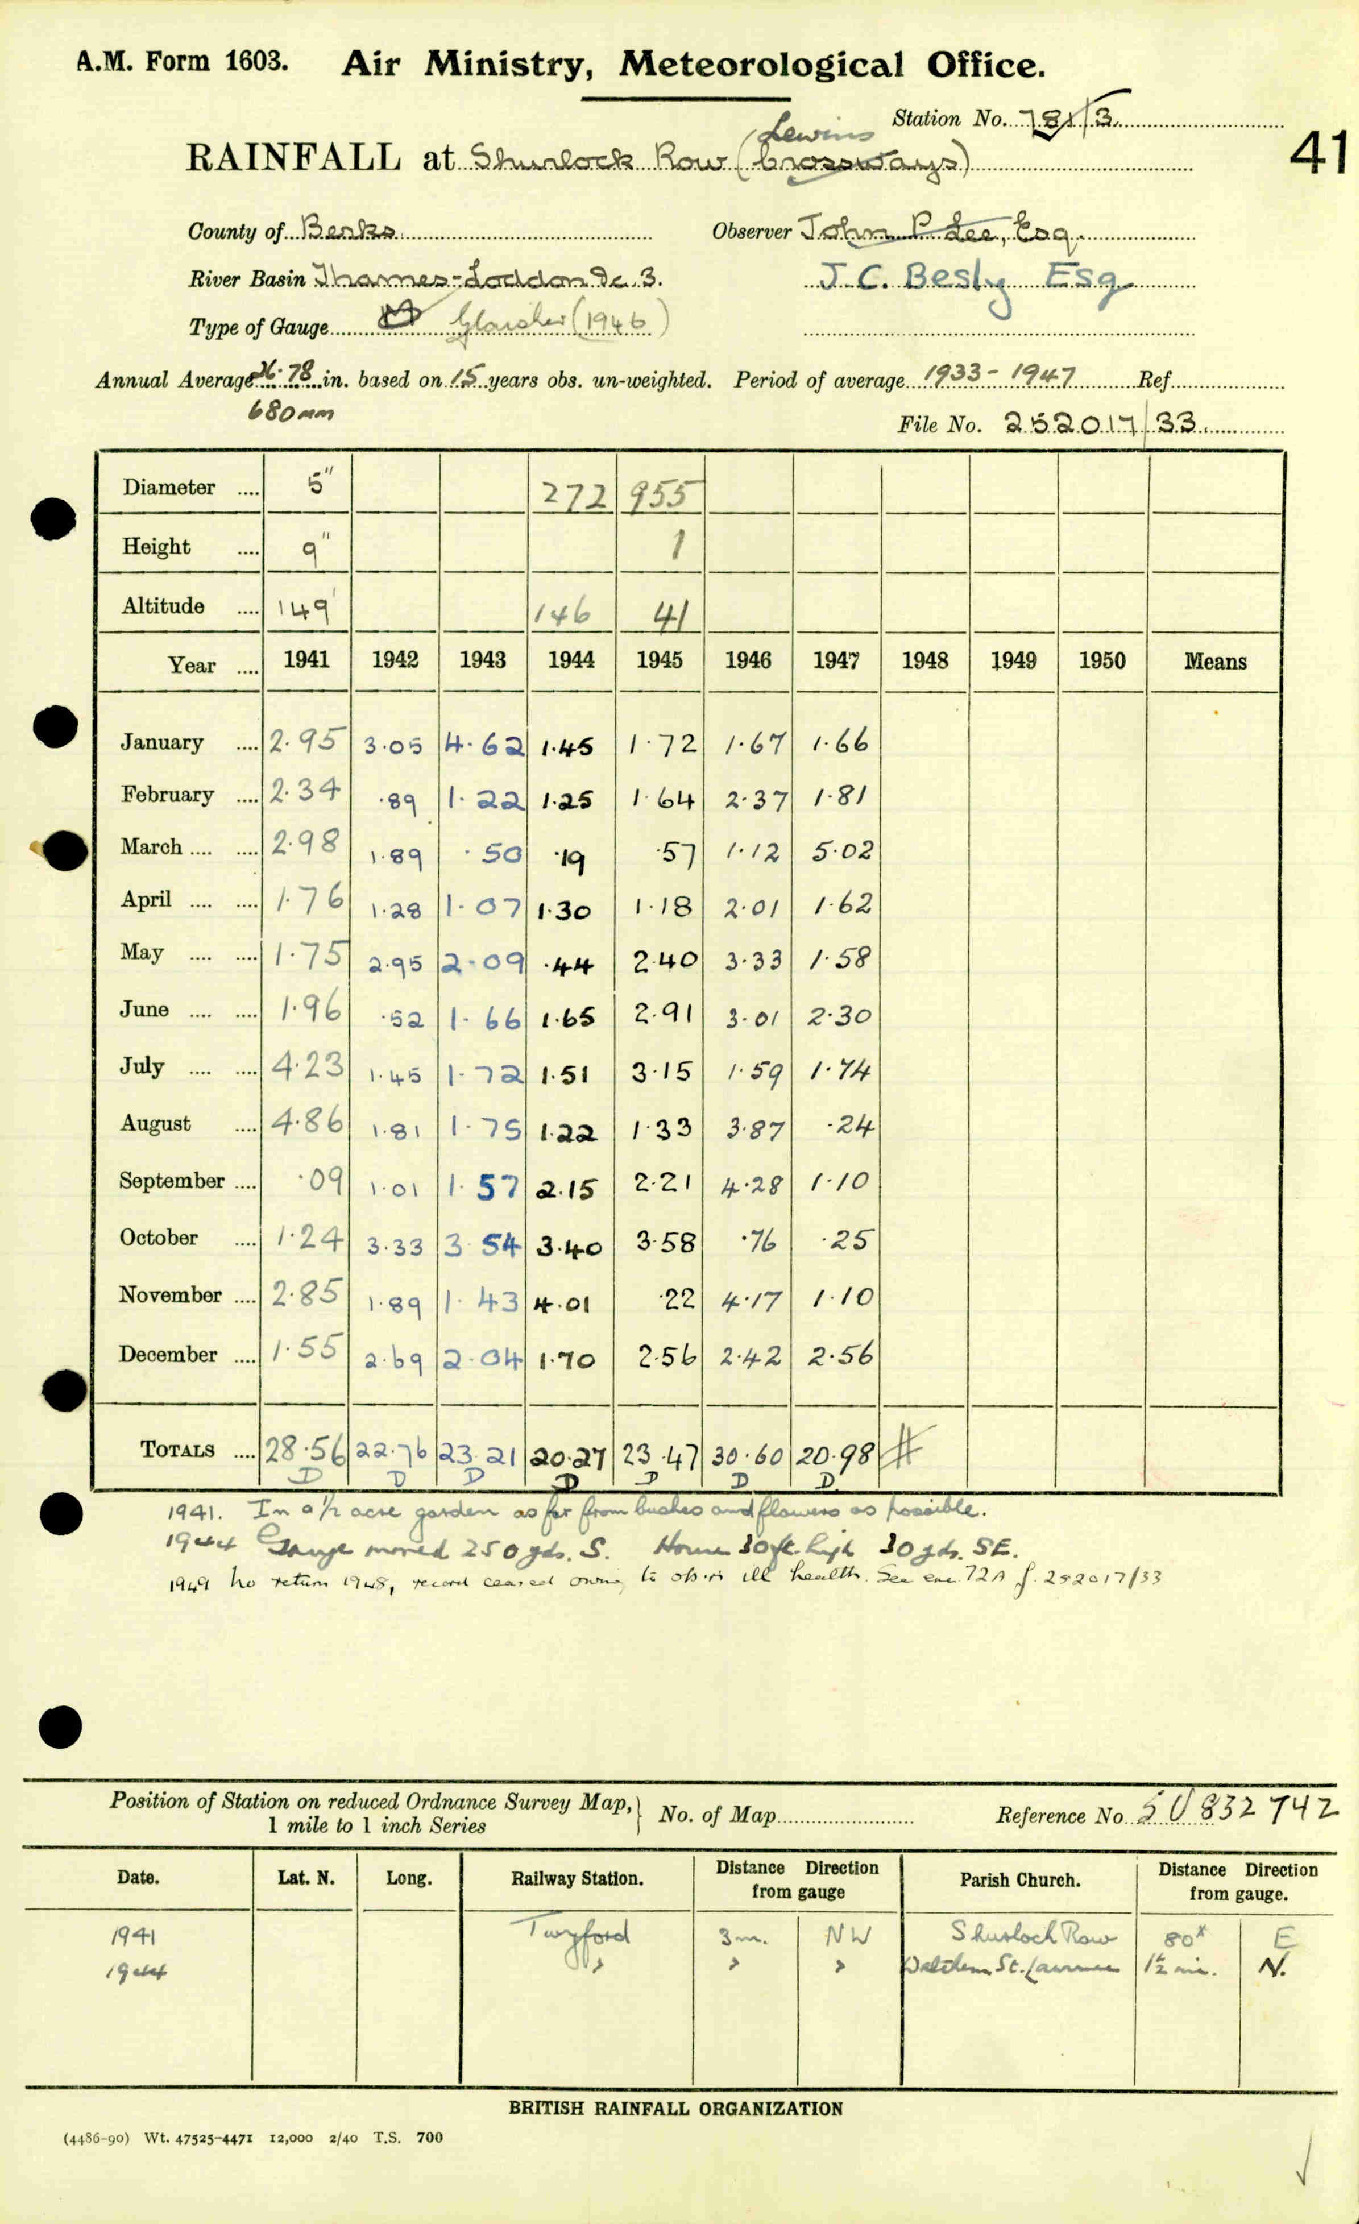 A.M. Form 1603. Air Ministry, Meteorological Office.
Station No. 781/3
41
Lewins
RAINFALL at Shurlock Row (Crossways)
County of Berks. Observer John P. Lee, Esq.
River Basin Thames-Loddon &c. 3. J.C. Besly Esq
Type of Gauge M Glaisher (1946)
Annual Average 26.78 in. based on 15 years obs. un-weighted. Period of average 1933-1947 Ref.
680mm
File No. 252017/33.
Diameter 5" 272 955
Height 9" 1
Altitude 149' 146 41
Year 1941 1942 1943 1944 1945 1946 1947 1948 1949 1950 Means
January 2.95 3.05 4.62 1.45 1.72 1.67 1.66
February 2.34 .89 1.22 1.25 1.64 2.37 1.81
March 2.98 1.89 .50 .19 .57 1.12 5.02
April 1.76 1.28 1.07 1.30 1.18 2.01 1.62
May 1.75 2.95 2.09 .44 2.40 3.33 1.58
June 1.96 .52 1.66 1.65 2.91 3.01 2.30
July 4.23 1.45 1.72 1.51 3.15 1.59 1.74
August 4.86 1.81 1.75 1.22 1.33 3.87 .24
September .09 1.01 1.57 2.15 2.21 4.28 1.10
October 1.24 3.33 3.54 3.40 3.58 .76 .25
November 2.85 1.89 1.43 4.01 .22 4.17 1.10
December 1.55 2.69 2.04 1.70 2.56 2.42 2.56
TOTALS 28.56 22.76 23.21 20.27 23.47 30.60 20.98 #
D D D D D D D
1941. In a 1/2 acre garden as far from bushes and flowers as possible.
1944 Gauge moved 250 yds. S. House 30ft. high 30 yds. SE.
1949 No return 1948, record ceased owing to obs'rs ill health. See enc. 72A f. 252017/33
Position of Station on reduced Ordnance Survey Map, 1 mile to 1 inch Series } No. of Map Reference No. SU 832 742
Date. Lat. N. Long. Railway Station. Distance Direction from gauge Parish Church. Distance Direction from gauge.
1941 Twyford 3m. NW Shurlock Row 80x E
1944 " " " Waltham St. Lawrence 1½ mi. N.
BRITISH RAINFALL ORGANIZATION
(4486-90) Wt. 47525-4471 12,000 2/40 T.S. 700